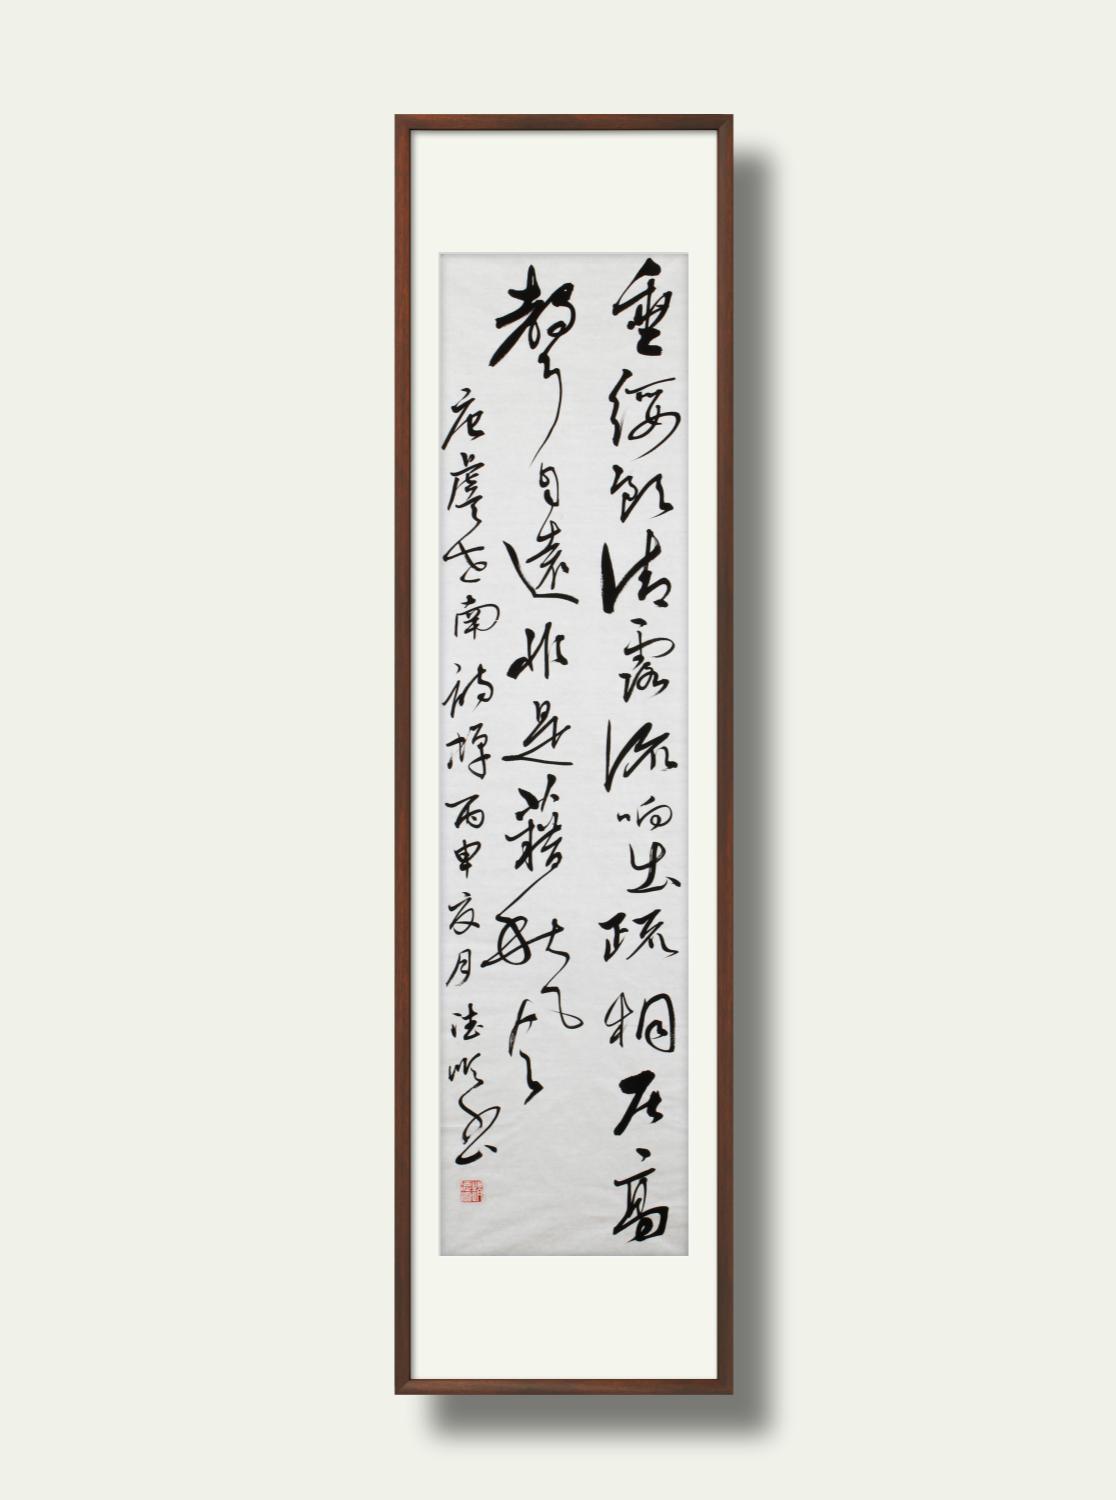 垂緌飲清露流响出疏桐居高
聲自遠非是藉秋風
唐虞世南詩蟬丙申夏月德順書